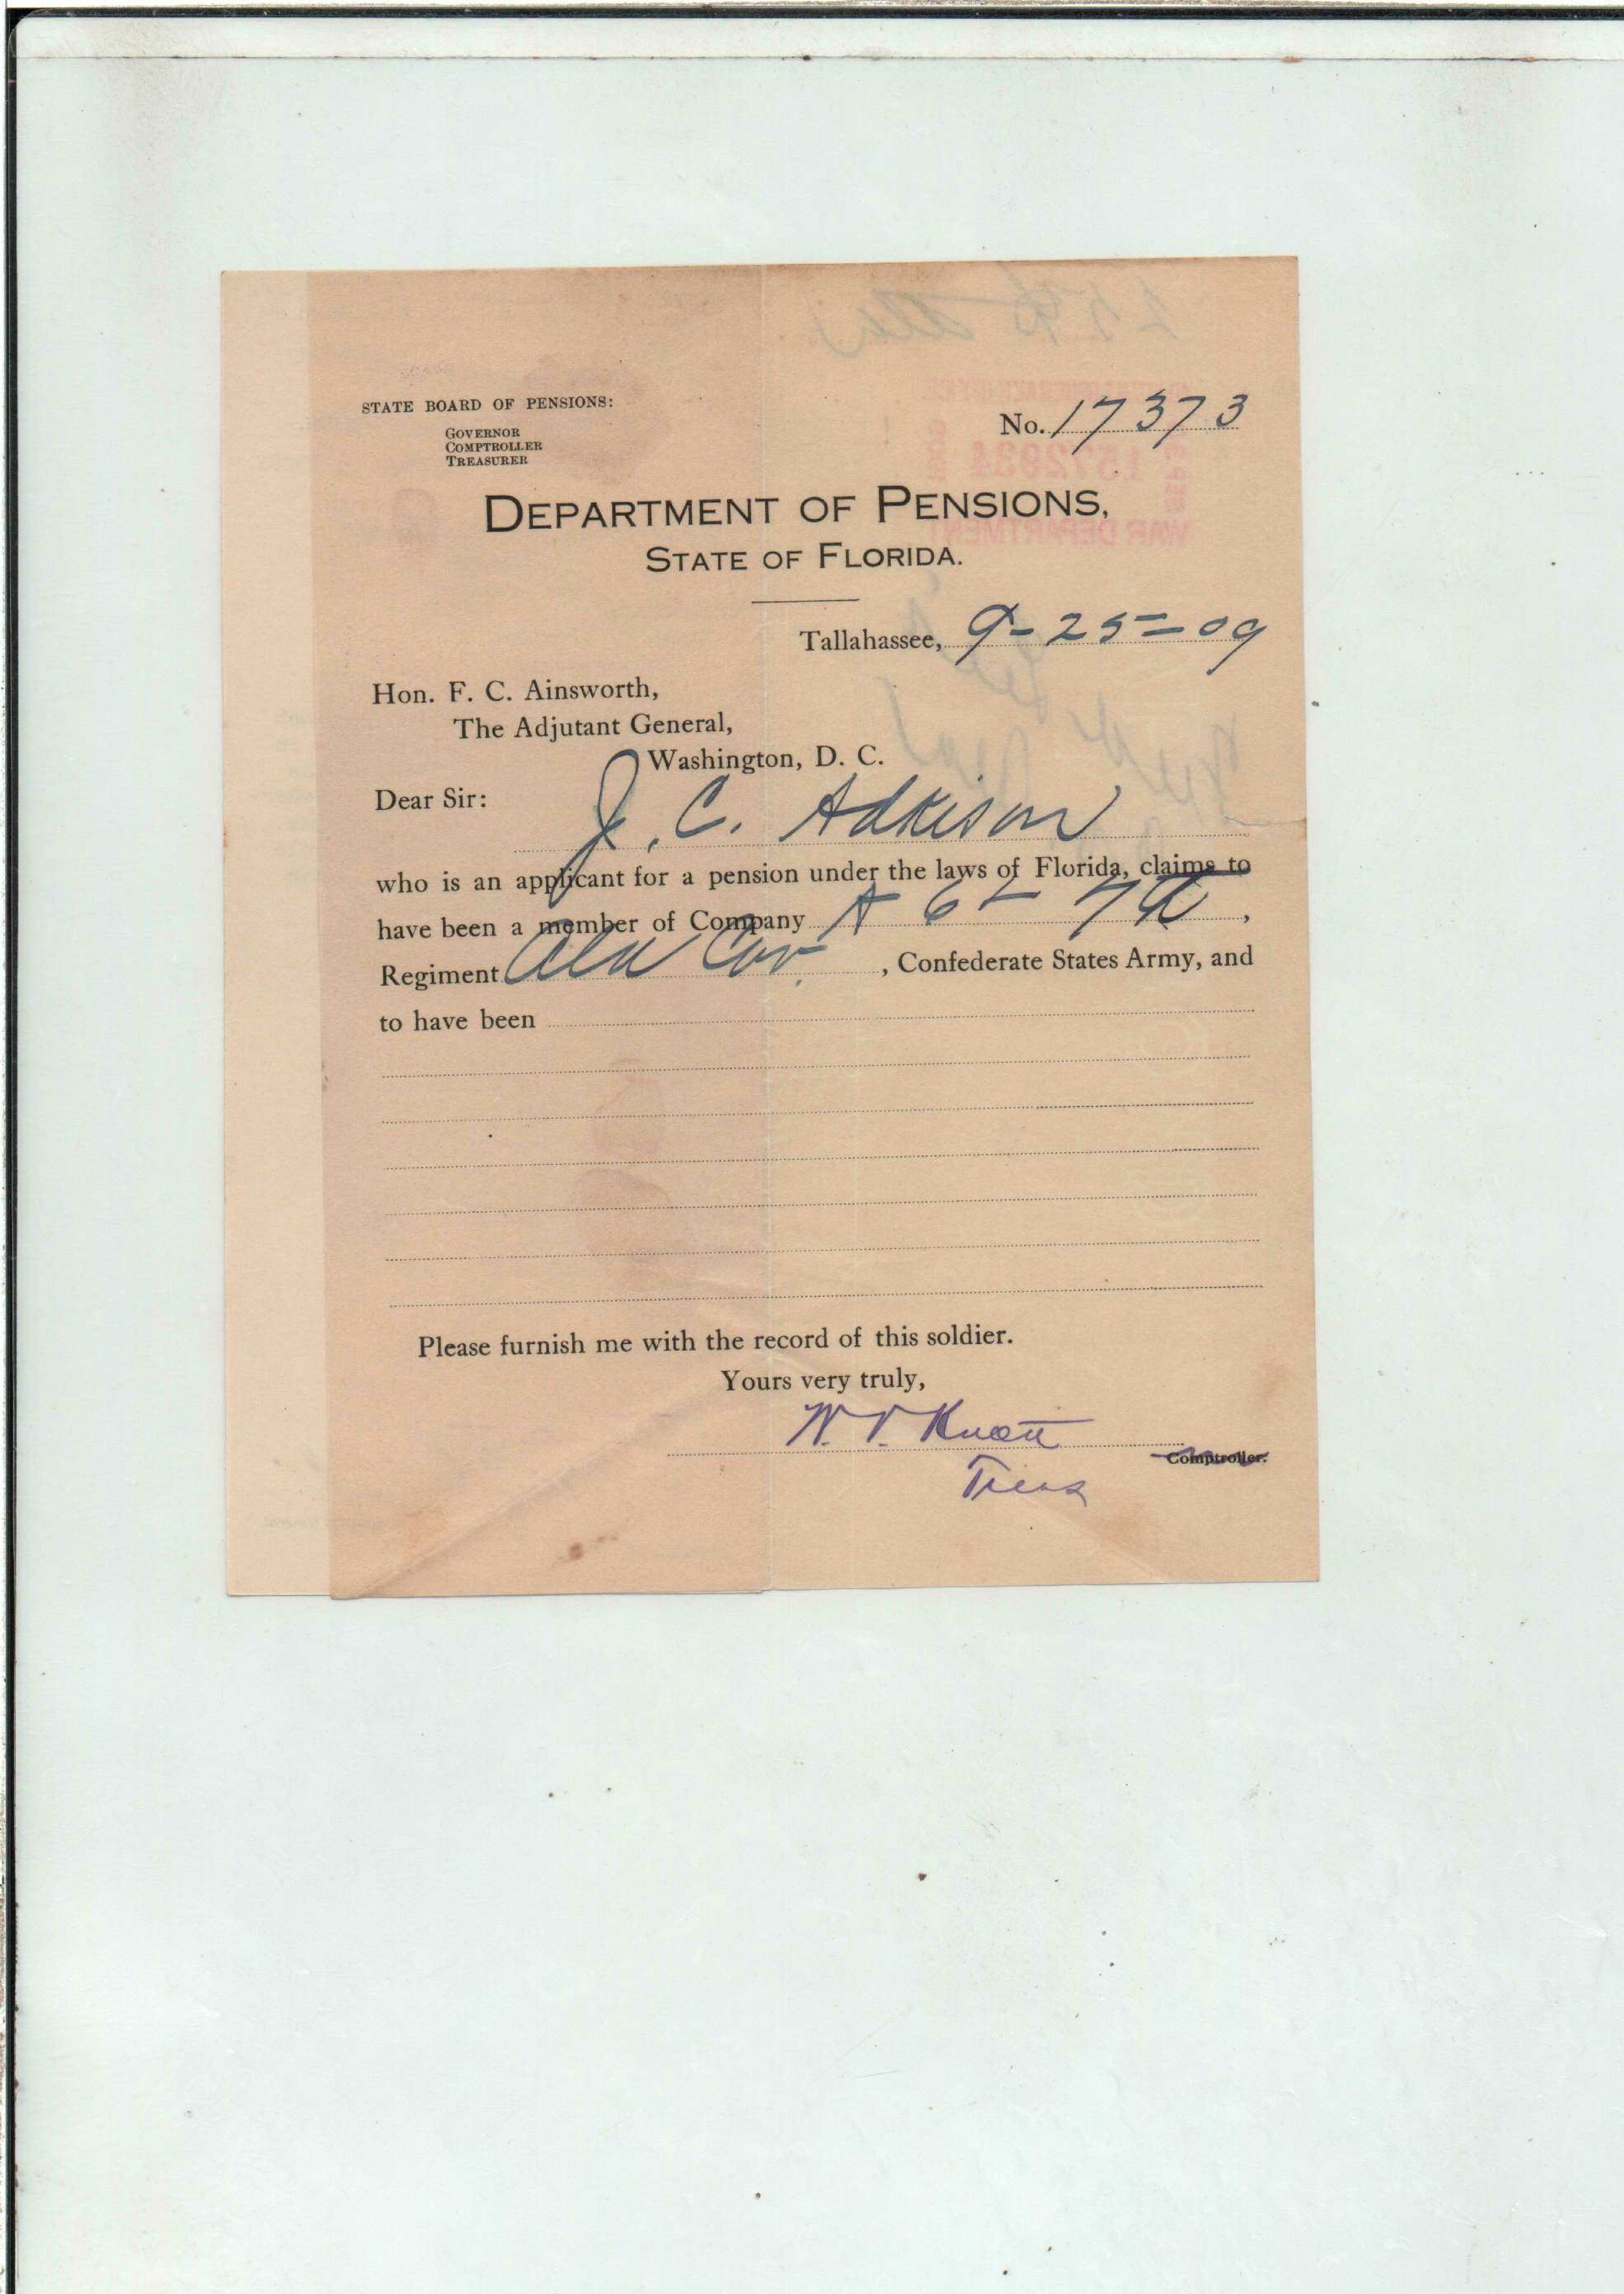 STATE BOARD OF PENSIONS:
GOVERNOR
COMPTROLLER
TREASURER
No. 17373
DEPARTMENT OF PENSIONS,
STATE OF FLORIDA.
Tallahassee, 9-25-09
Hon. F. C. Ainsworth,
The Adjutant General,
Washington, D. C.
Dear Sir:
J. C. Adkison
who is an applicant for a pension under the laws of Florida, claims to
have been a member of Company A 6-7
Regiment Ala Cav. , Confederate States Army, and
to have been
Please furnish me with the record of this soldier.
Yours very truly,
W. V. Knott
Comptroller.
Treas